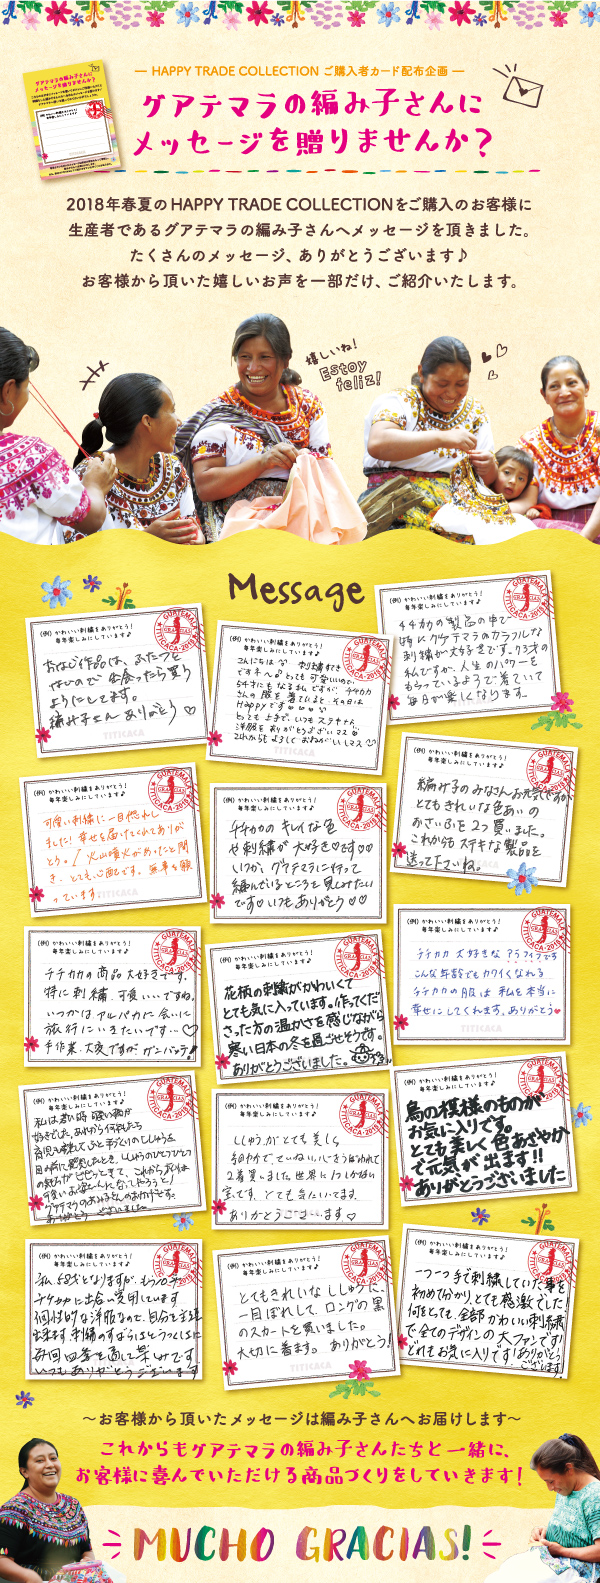 HAPPY TRADE COLLECTION ご購入者カード配布企画
グアテマラの編み子さんに
メッセージを贈りませんか?
グアテマラの編み子さんに
メッセージを贈りませんか?
2018年春夏のHAPPY TRADE COLLECTIONをご購入のお客様に
生産者であるグアテマラの編み子さんへメッセージを頂きました。
たくさんのメッセージ、ありがとうございます♪
お客様から頂いた嬉しいお声を一部だけ、ご紹介いたします。
嬉しいね!
Estoy
feliz!
Message
(例) かわいい刺繍をありがとう!
毎年楽しみにしています♪
GUATEMALA
GRACIAS
TITICACA・2018
おなじ作品は、ふたつと
ないので 出会ったら買う
ようにしてます。
編み子さん ありがとう♡
TITICACA
(例) かわいい刺繍をありがとう!
毎年楽しみにしています♪
GUATEMALA
GRACIAS
TITICACA・2018
Happyです
(例) かわいい刺繍をありがとう!
毎年楽しみにしています♪
GUATEMALA
GRACIAS
TITICACA・2018
チチカカの製品の中で
特にグアテマラのカラフルな
刺繍が大好きです。43才の
私ですが、人生のパワーを
もらっているようで着ていて
毎日が楽しくなります。
TITICACA
(例) かわいい刺繍をありがとう!
毎年楽しみにしています♪
GUATEMALA
GRACIAS
TITICACA・2018
可愛い刺繍に一目惚れし
ました! 幸せを届けてくれてありが
とう。! 火山噴火があったと聞
き、とても心配です。無事を願
っています。
(例) かわいい刺繍をありがとう!
毎年楽しみにしています♪
GUATEMALA
GRACIAS
TITICACA・2018
チチカカのキレイな色
や刺繍が大好きです♡♡
いつか、グアテマラに行って
編んでいるところを見てみたい
です♡いつもありがとう♡♡
GUATEMALA
GRACIAS
TITICACA・2018
編み子のみなさんお元気ですか
とてもきれいな色あいの
おさいふを2つ買いました。
これからもステキな製品を
送って下さいね。
(例) かわいい刺繍をありがとう!
毎年楽しみにしています♪
GUATEMALA
GRACIAS
TITICACA・2018
チチカカの商品大好きです。
特に刺繍、可愛いいですね。
いつかは アルパカに会いに
旅行にいきたいです…♡
手作業、大変ですが ガンバッテ!
(例) かわいい刺繍をありがとう!
毎年楽しみにしています♪
GUATEMALA
GRACIAS
TITICACA・2018
花柄の刺繍がかわいくて
とても気に入っています。作ってくだ
さった方の温かさを感じながら
寒い日本の冬を過ごせそうです。
ありがとうございました。
(例) かわいい刺繍をありがとう!
毎年楽しみにしています♪
GUATEMALA
GRACIAS
TITICACA・2018
チチカカ 大好きな アラフィフです
こんな年齢でもカワイくなれる
チチカカの服は 私を本当に
幸せにしてくれます。ありがとう♥
TITICACA
(例) かわいい刺繍をありがとう!
毎年楽しみにしています♪
GUATEMALA
GRACIAS
TITICACA・2018
(例) かわいい刺繍をありがとう!
毎年楽しみにしています♪
GUATEMALA
GRACIAS
TITICACA・2018
ししゅうがとても美しく
2着買いました。世界に1つしかない
宝です。とても気に入ってます。
ありがとうございます♡
(例) かわいい刺繍をありがとう!
毎年楽しみにしています♪
GUATEMALA
GRACIAS
TITICACA・2018
鳥の模様のものが
お気に入りです。
とても美しく色あざやか
で元気が出ます!!
ありがとうございました
(例) かわいい刺繍をありがとう!
毎年楽しみにしています♪
GUATEMALA
GRACIAS
TITICACA・2018
(例) かわいい刺繍をありがとう!
毎年楽しみにしています♪
GUATEMALA
GRACIAS
TITICACA・2018
とてもきれいなししゅうに、
一目ぼれして、ロングの黒
のスカートを買いました。
大切に着ます。ありがとう!
TITICACA
(例) かわいい刺繍をありがとう!
毎年楽しみにしています♪
GUATEMALA
GRACIAS
TITICACA・2018
一つ一つ手で刺繍していた事を
初めて分かり、とても感激でした!
何をとっても、全部かわいい刺繍
で全てのデザインの大ファンです!
どれもお気に入りです!ありがとう
ございます!
〜お客様から頂いたメッセージは編み子さんへお届けします〜
これからもグアテマラの編み子さんたちと一緒に、
お客様に喜んでいただける商品づくりをしていきます!
MUCHO GRACIAS!